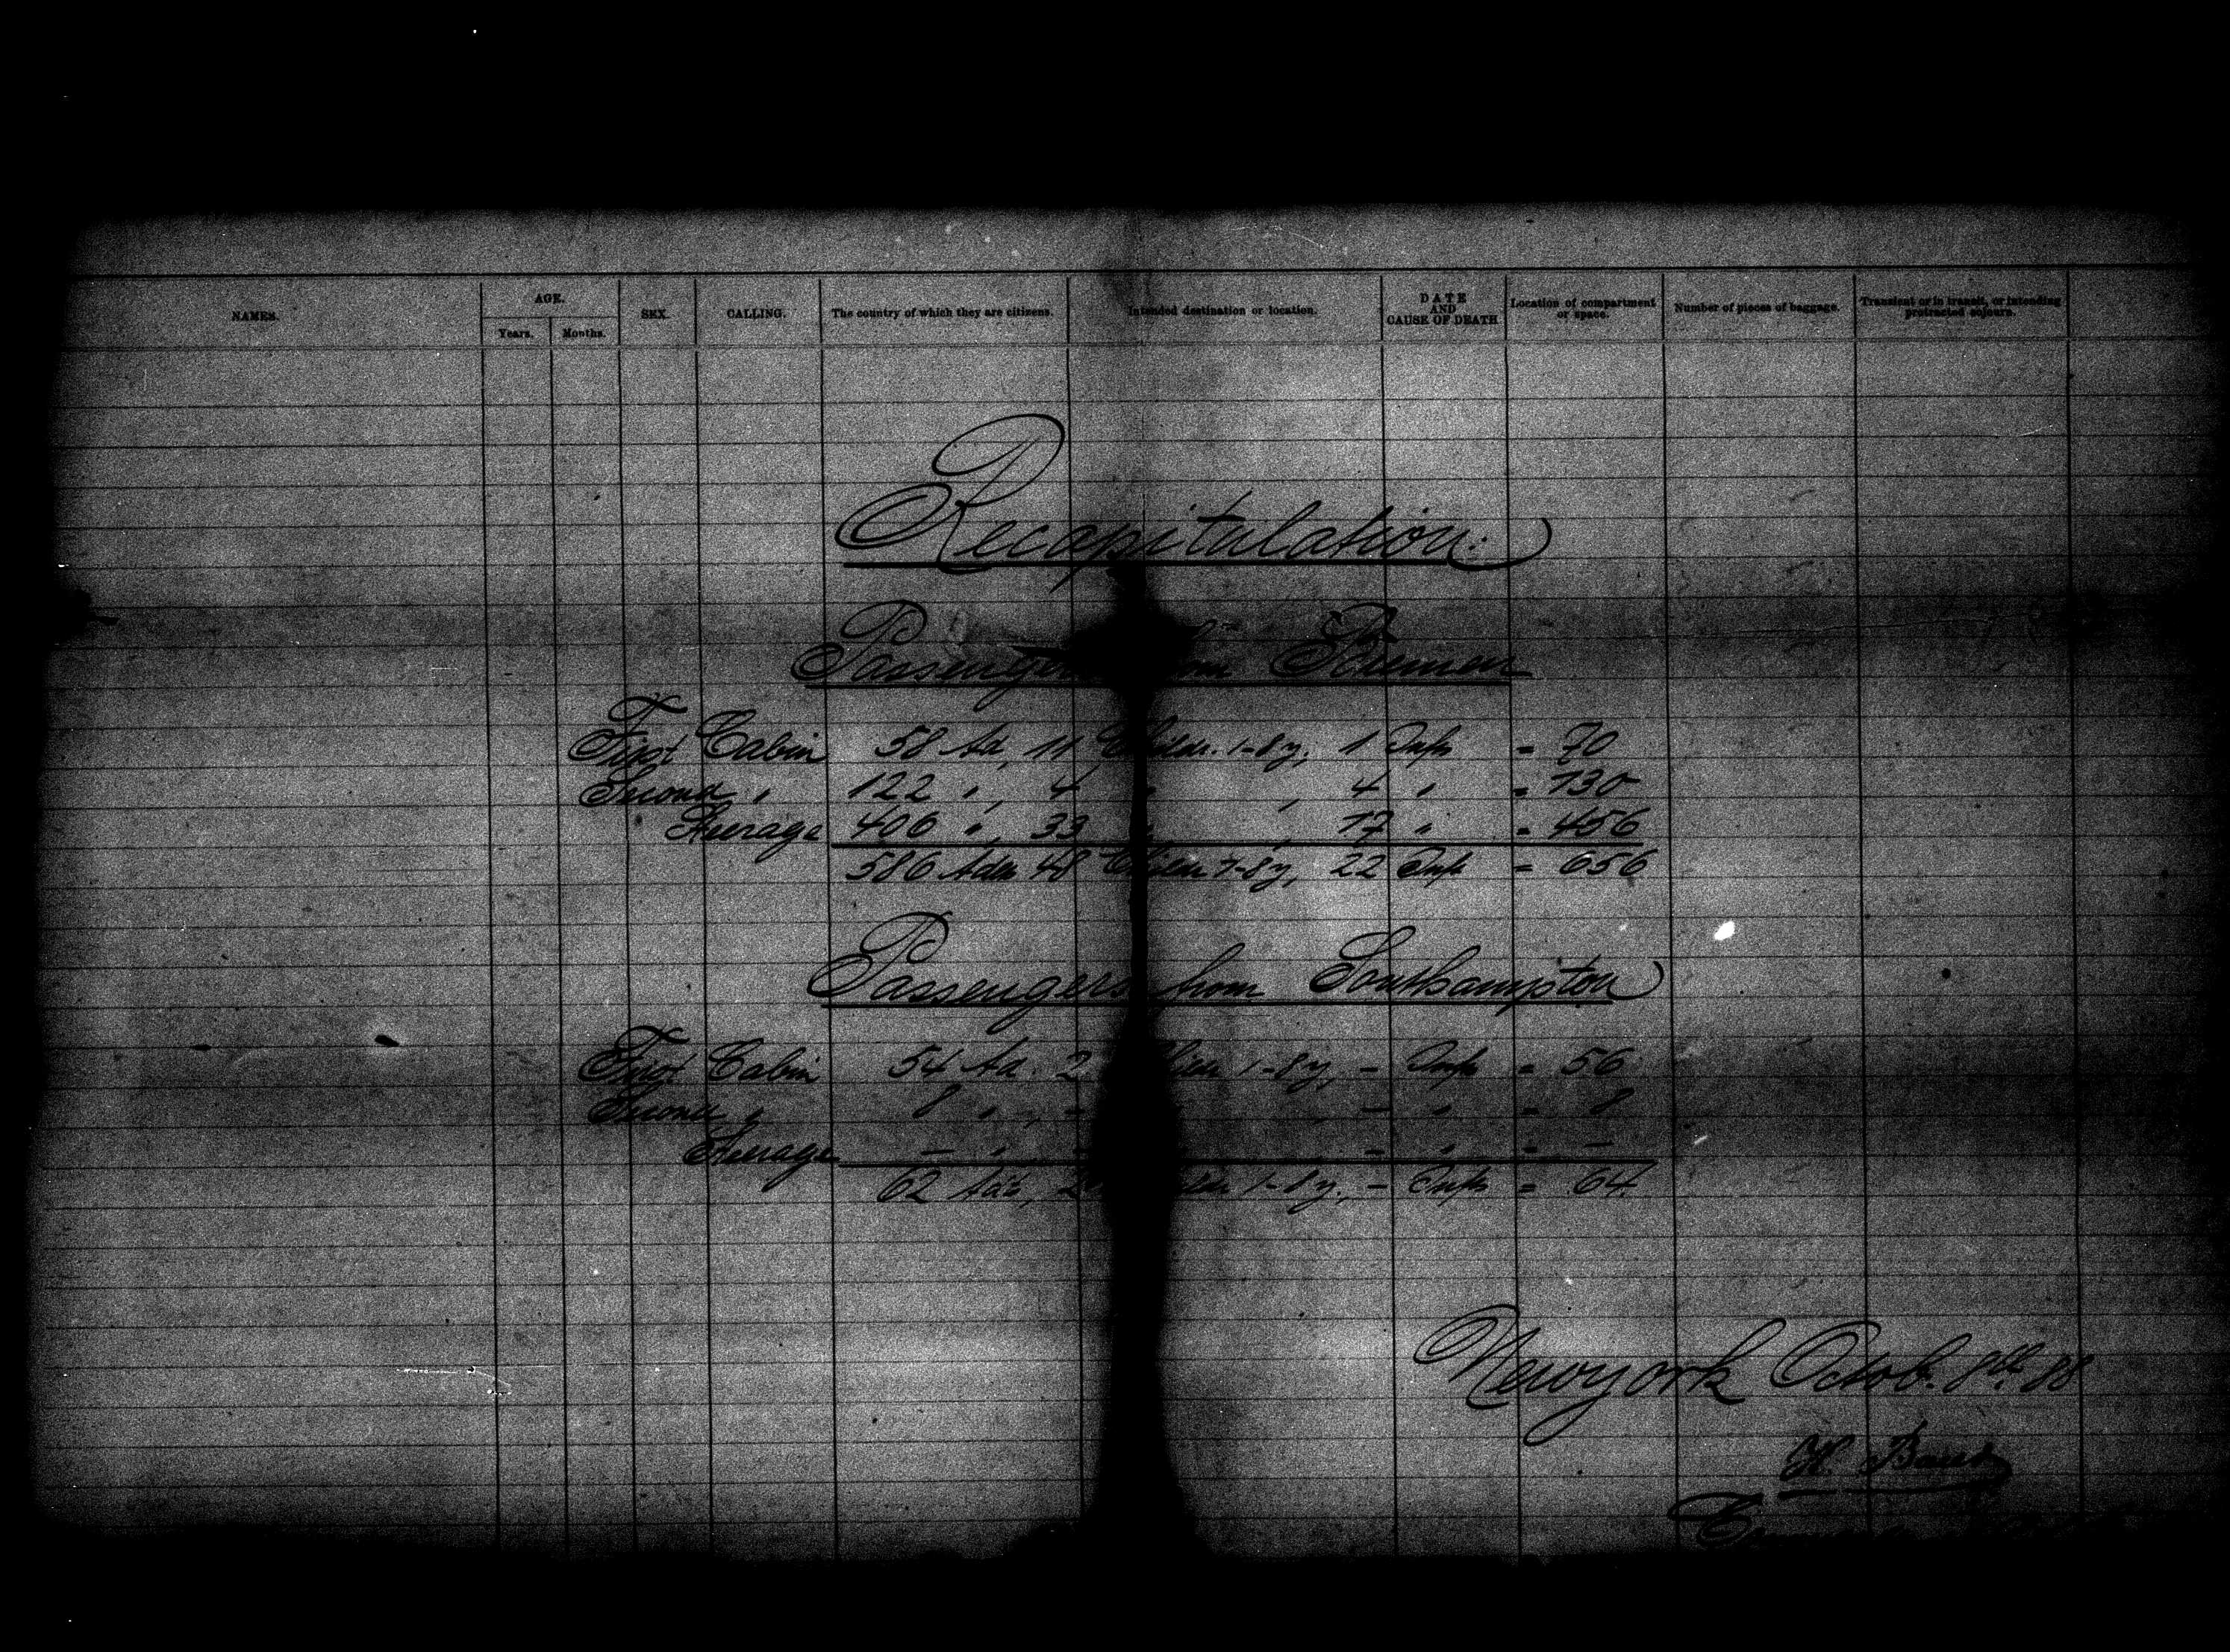 NAMES. AGE. SEX. CALLING. The country of which they are citizens. Intended destination or location. DATE AND CAUSE OF DEATH Location of compartment or space. Number of pieces of baggage. Transient or in transit, or intending protracted sojourn.
Years. Months.
Recapitulation:
Passengers from Bremen
First Cabin 58 Ad, 11 Childr. 1-8 y, 1 Infs = 70
Second " 122 ", 4 " , 4 " = 130
Steerage 406 ", 33 " , 17 " = 456
586 Adts 48 Childr 1-8 y, 22 Infs = 656
Passengers from Southampton
First Cabin 54 Ad. 2 Childr 1-8 y, - Infs = 56
Second " 8 ", - - " = 8
Steerage - " - - " = -
62 Ads, 2 Childr 1-8 y, - Infs = 64
Newyork Octob. 8th 88